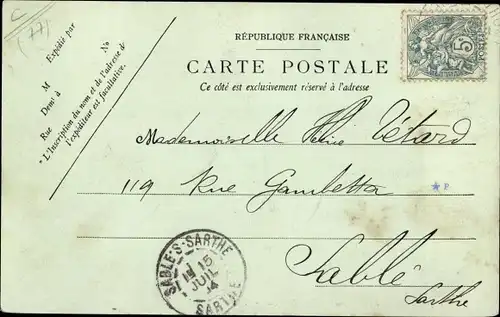 (77)
Expédié par
M
Demt à
Rue
No
"L'Inscription du nom et de l'adresse de
l'expéditeur est facultative."
RÉPUBLIQUE FRANÇAISE
CARTE POSTALE
Ce côté est exclusivement réservé à l'adresse
5c
POSTES
Mademoiselle Hélène Tétard
119 Rue Gambetta
Sablé
Sarthe
SABLE-S-SARTHE
15
JUIL
SARTHE